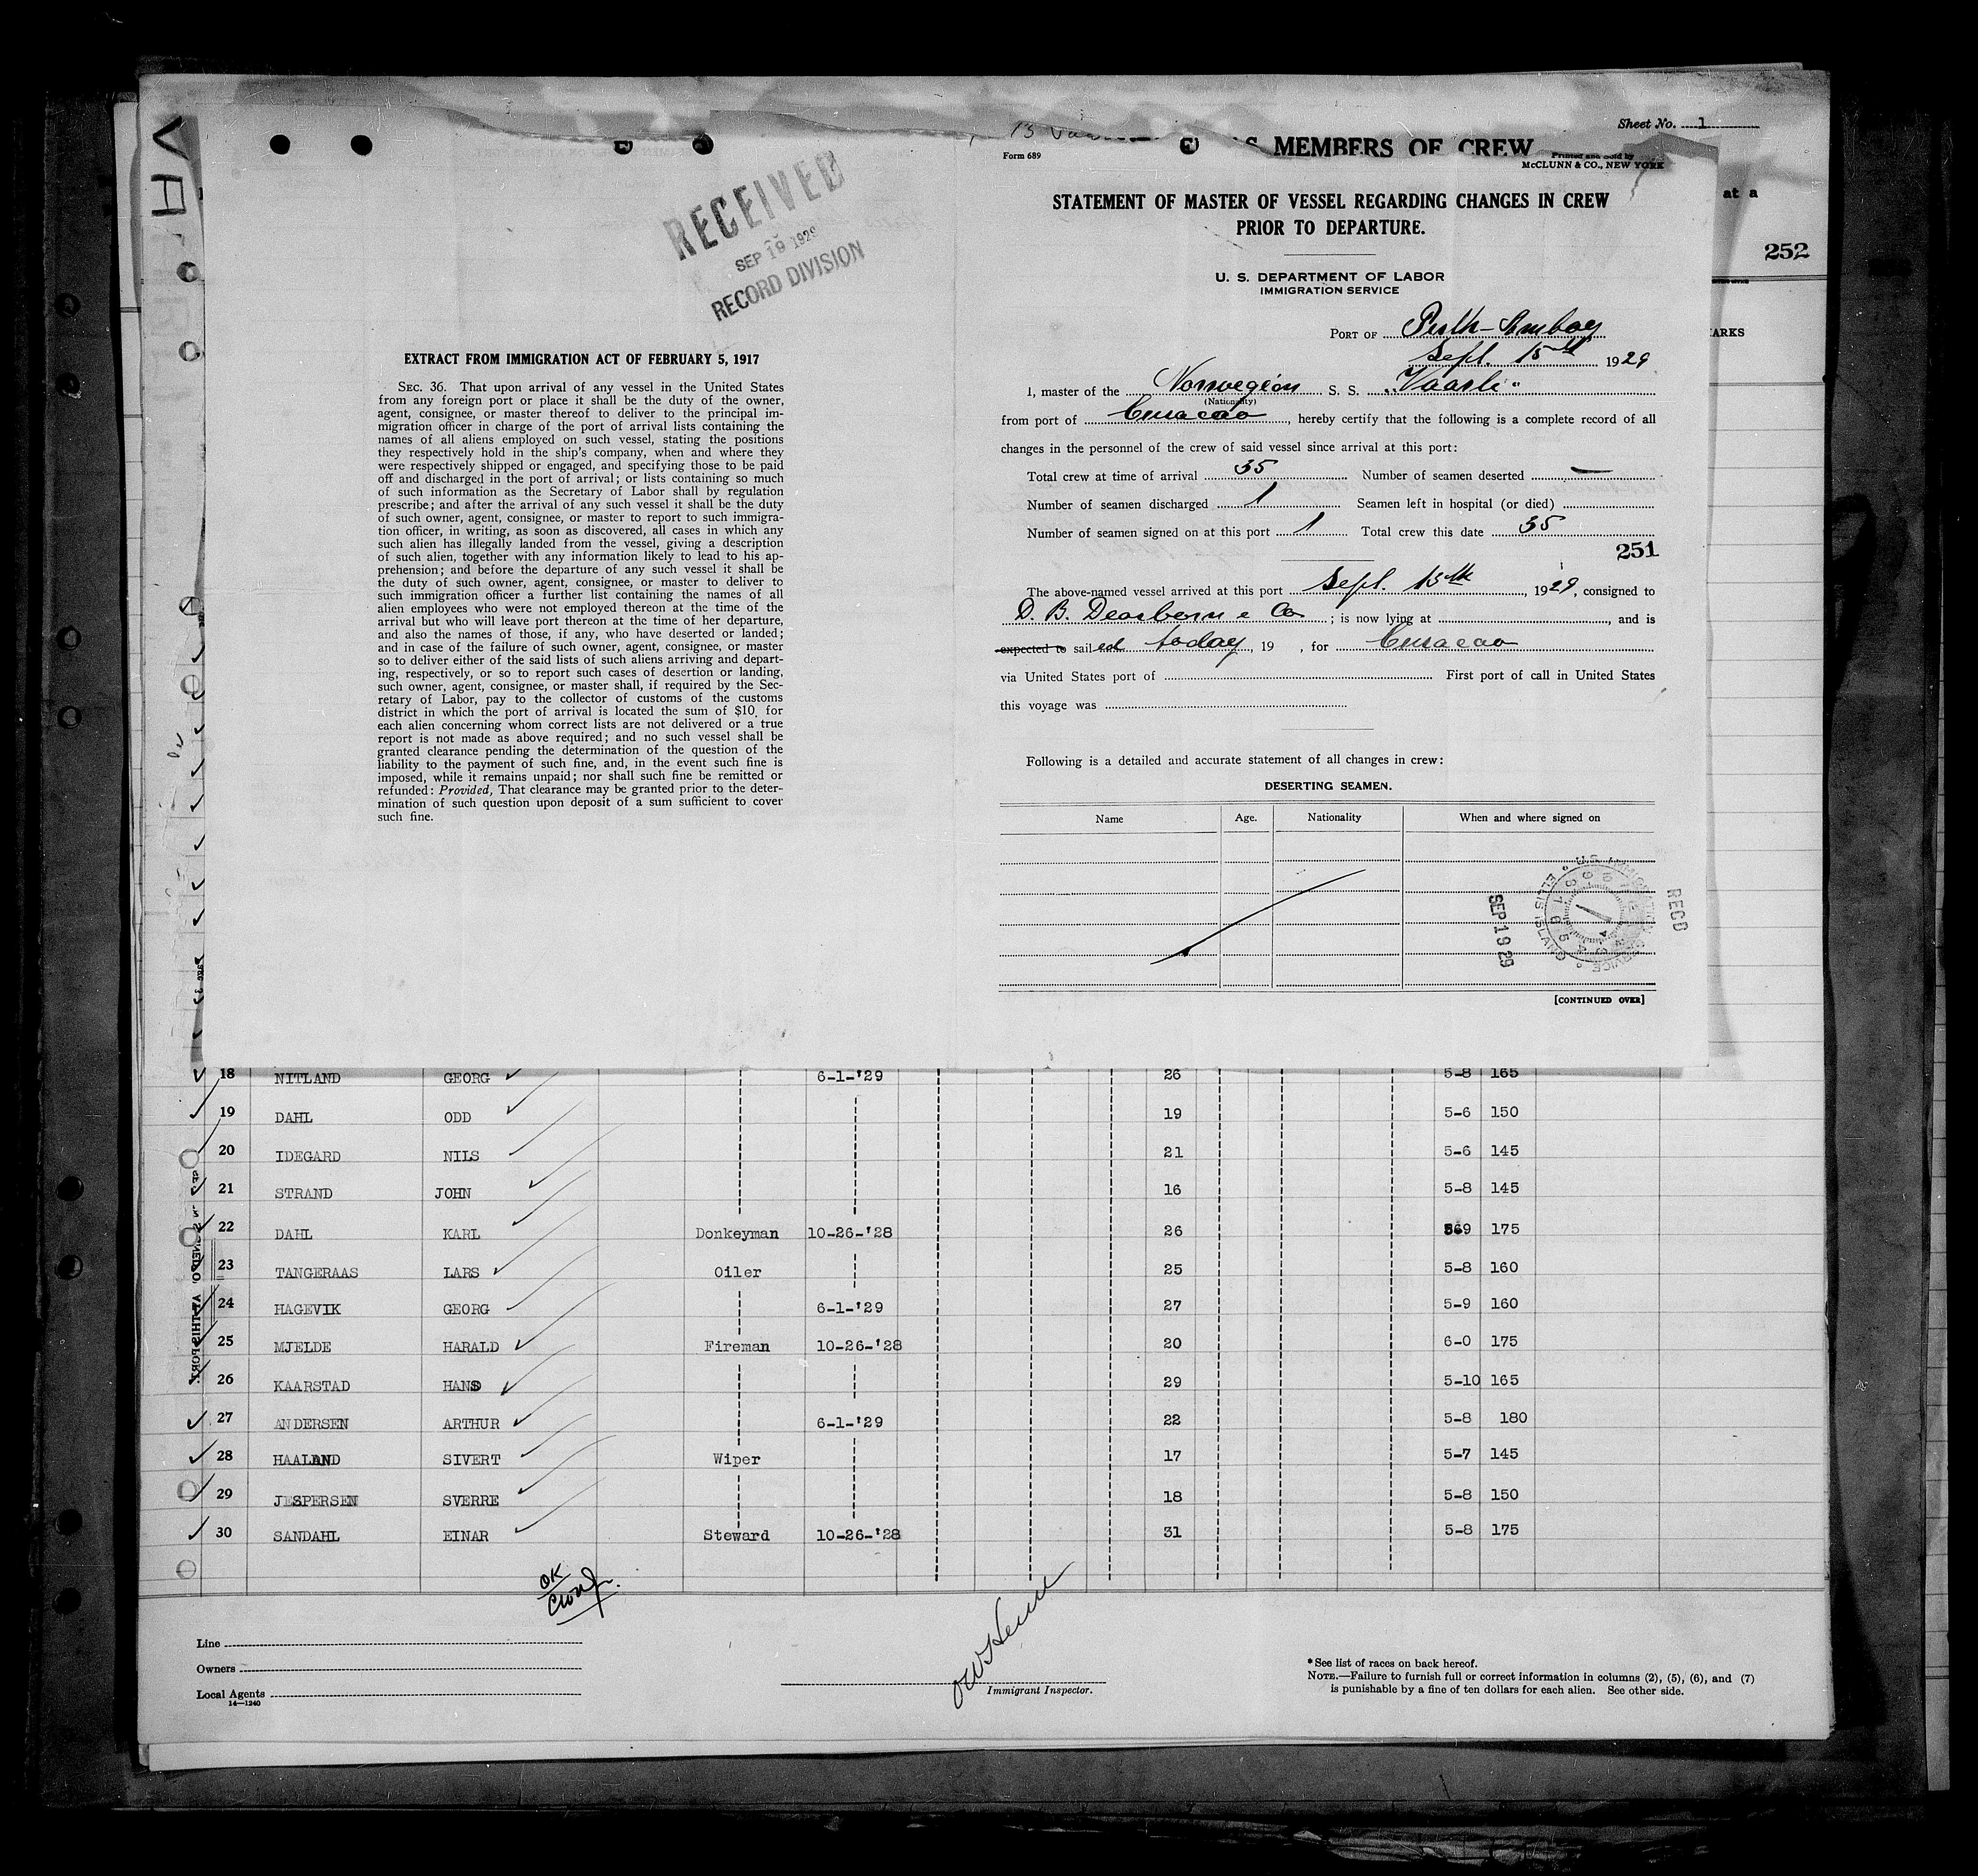 Sheet No. 1
MEMBERS OF CREW
Form 689
Printed and Sold by
McCLUNN & CO., NEW YORK
RECEIVED
SEP 19 1929
RECORD DIVISION
at a
252
ARKS
EXTRACT FROM IMMIGRATION ACT OF FEBRUARY 5, 1917
SEC. 36. That upon arrival of any vessel in the United States
from any foreign port or place it shall be the duty of the owner,
agent, consignee, or master thereof to deliver to the principal im-
migration officer in charge of the port of arrival lists containing the
names of all aliens employed on such vessel, stating the positions
they respectively hold in the ship's company, when and where they
were respectively shipped or engaged, and specifying those to be paid
off and discharged in the port of arrival; or lists containing so much
of such information as the Secretary of Labor shall by regulation
prescribe; and after the arrival of any such vessel it shall be the duty
of such owner, agent, consignee, or master to report to such immigra-
tion officer, in writing, as soon as discovered, all cases in which any
such alien has illegally landed from the vessel, giving a description
of such alien, together with any information likely to lead to his ap-
prehension; and before the departure of any such vessel it shall be
the duty of such owner, agent, consignee, or master to deliver to
such immigration officer a further list containing the names of all
alien employees who were not employed thereon at the time of the
arrival but who will leave port thereon at the time of her departure,
and also the names of those, if any, who have deserted or landed;
and in case of the failure of such owner, agent, consignee, or master
so to deliver either of the said lists of such aliens arriving and depart-
ing, respectively, or so to report such cases of desertion or landing,
such owner, agent, consignee, or master shall, if required by the Sec-
retary of Labor, pay to the collector of customs of the customs
district in which the port of arrival is located the sum of $10 for
each alien concerning whom correct lists are not delivered or a true
report is not made as above required; and no such vessel shall be
granted clearance pending the determination of the question of the
liability to the payment of such fine, and, in the event such fine is
imposed, while it remains unpaid; nor shall such fine be remitted or
refunded: Provided, That clearance may be granted prior to the deter-
mination of such question upon deposit of a sum sufficient to cover
such fine.
STATEMENT OF MASTER OF VESSEL REGARDING CHANGES IN CREW
PRIOR TO DEPARTURE.
U. S. DEPARTMENT OF LABOR
IMMIGRATION SERVICE
PORT OF Perth-Amboy
Sept. 15th 1929
I, master of the Norwegian S. S. "Vaarli"
(Nationality)
from port of Curacao, hereby certify that the following is a complete record of all
changes in the personnel of the crew of said vessel since arrival at this port:
Total crew at time of arrival 35 Number of seamen deserted —
Number of seamen discharged 1 Seamen left in hospital (or died)
Number of seamen signed on at this port 1 Total crew this date 35
251
The above-named vessel arrived at this port Sept. 15th, 1929, consigned to
D. B. Dearborn & Co ; is now lying at , and is
expected to sailed today, 19 , for Curacao
via United States port of First port of call in United States
this voyage was
Following is a detailed and accurate statement of all changes in crew:
DESERTING SEAMEN.
Name Age. Nationality When and where signed on
U.S. IMMIGRATION SERVICE ELLIS ISLAND
RECD
SEP 19 29
[CONTINUED OVER]
18 NITLAND GEORG 6-1-'29 26 5-8 165
19 DAHL ODD 19 5-6 150
20 IDEGARD NILS 21 5-6 145
21 STRAND JOHN 16 5-8 145
22 DAHL KARL Donkeyman 10-26-'28 26 569 175
23 TANGERAAS LARS Oiler 25 5-8 160
24 HAGEVIK GEORG 6-1-'29 27 5-9 160
25 MJELDE HARALD Fireman 10-26-'28 20 6-0 175
26 KAARSTAD HANS 29 5-10 165
27 ANDERSEN ARTHUR 6-1-'29 22 5-8 180
28 HAALAND SIVERT Wiper 17 5-7 145
29 JESPERSEN SVERRE 18 5-8 150
30 SANDAHL EINAR Steward 10-26-'28 31 5-8 175
OK
Line
Owners
Local Agents
14—1240
Immigrant Inspector.
* See list of races on back hereof.
NOTE.—Failure to furnish full or correct information in columns (2), (5), (6), and (7)
is punishable by a fine of ten dollars for each alien. See other side.